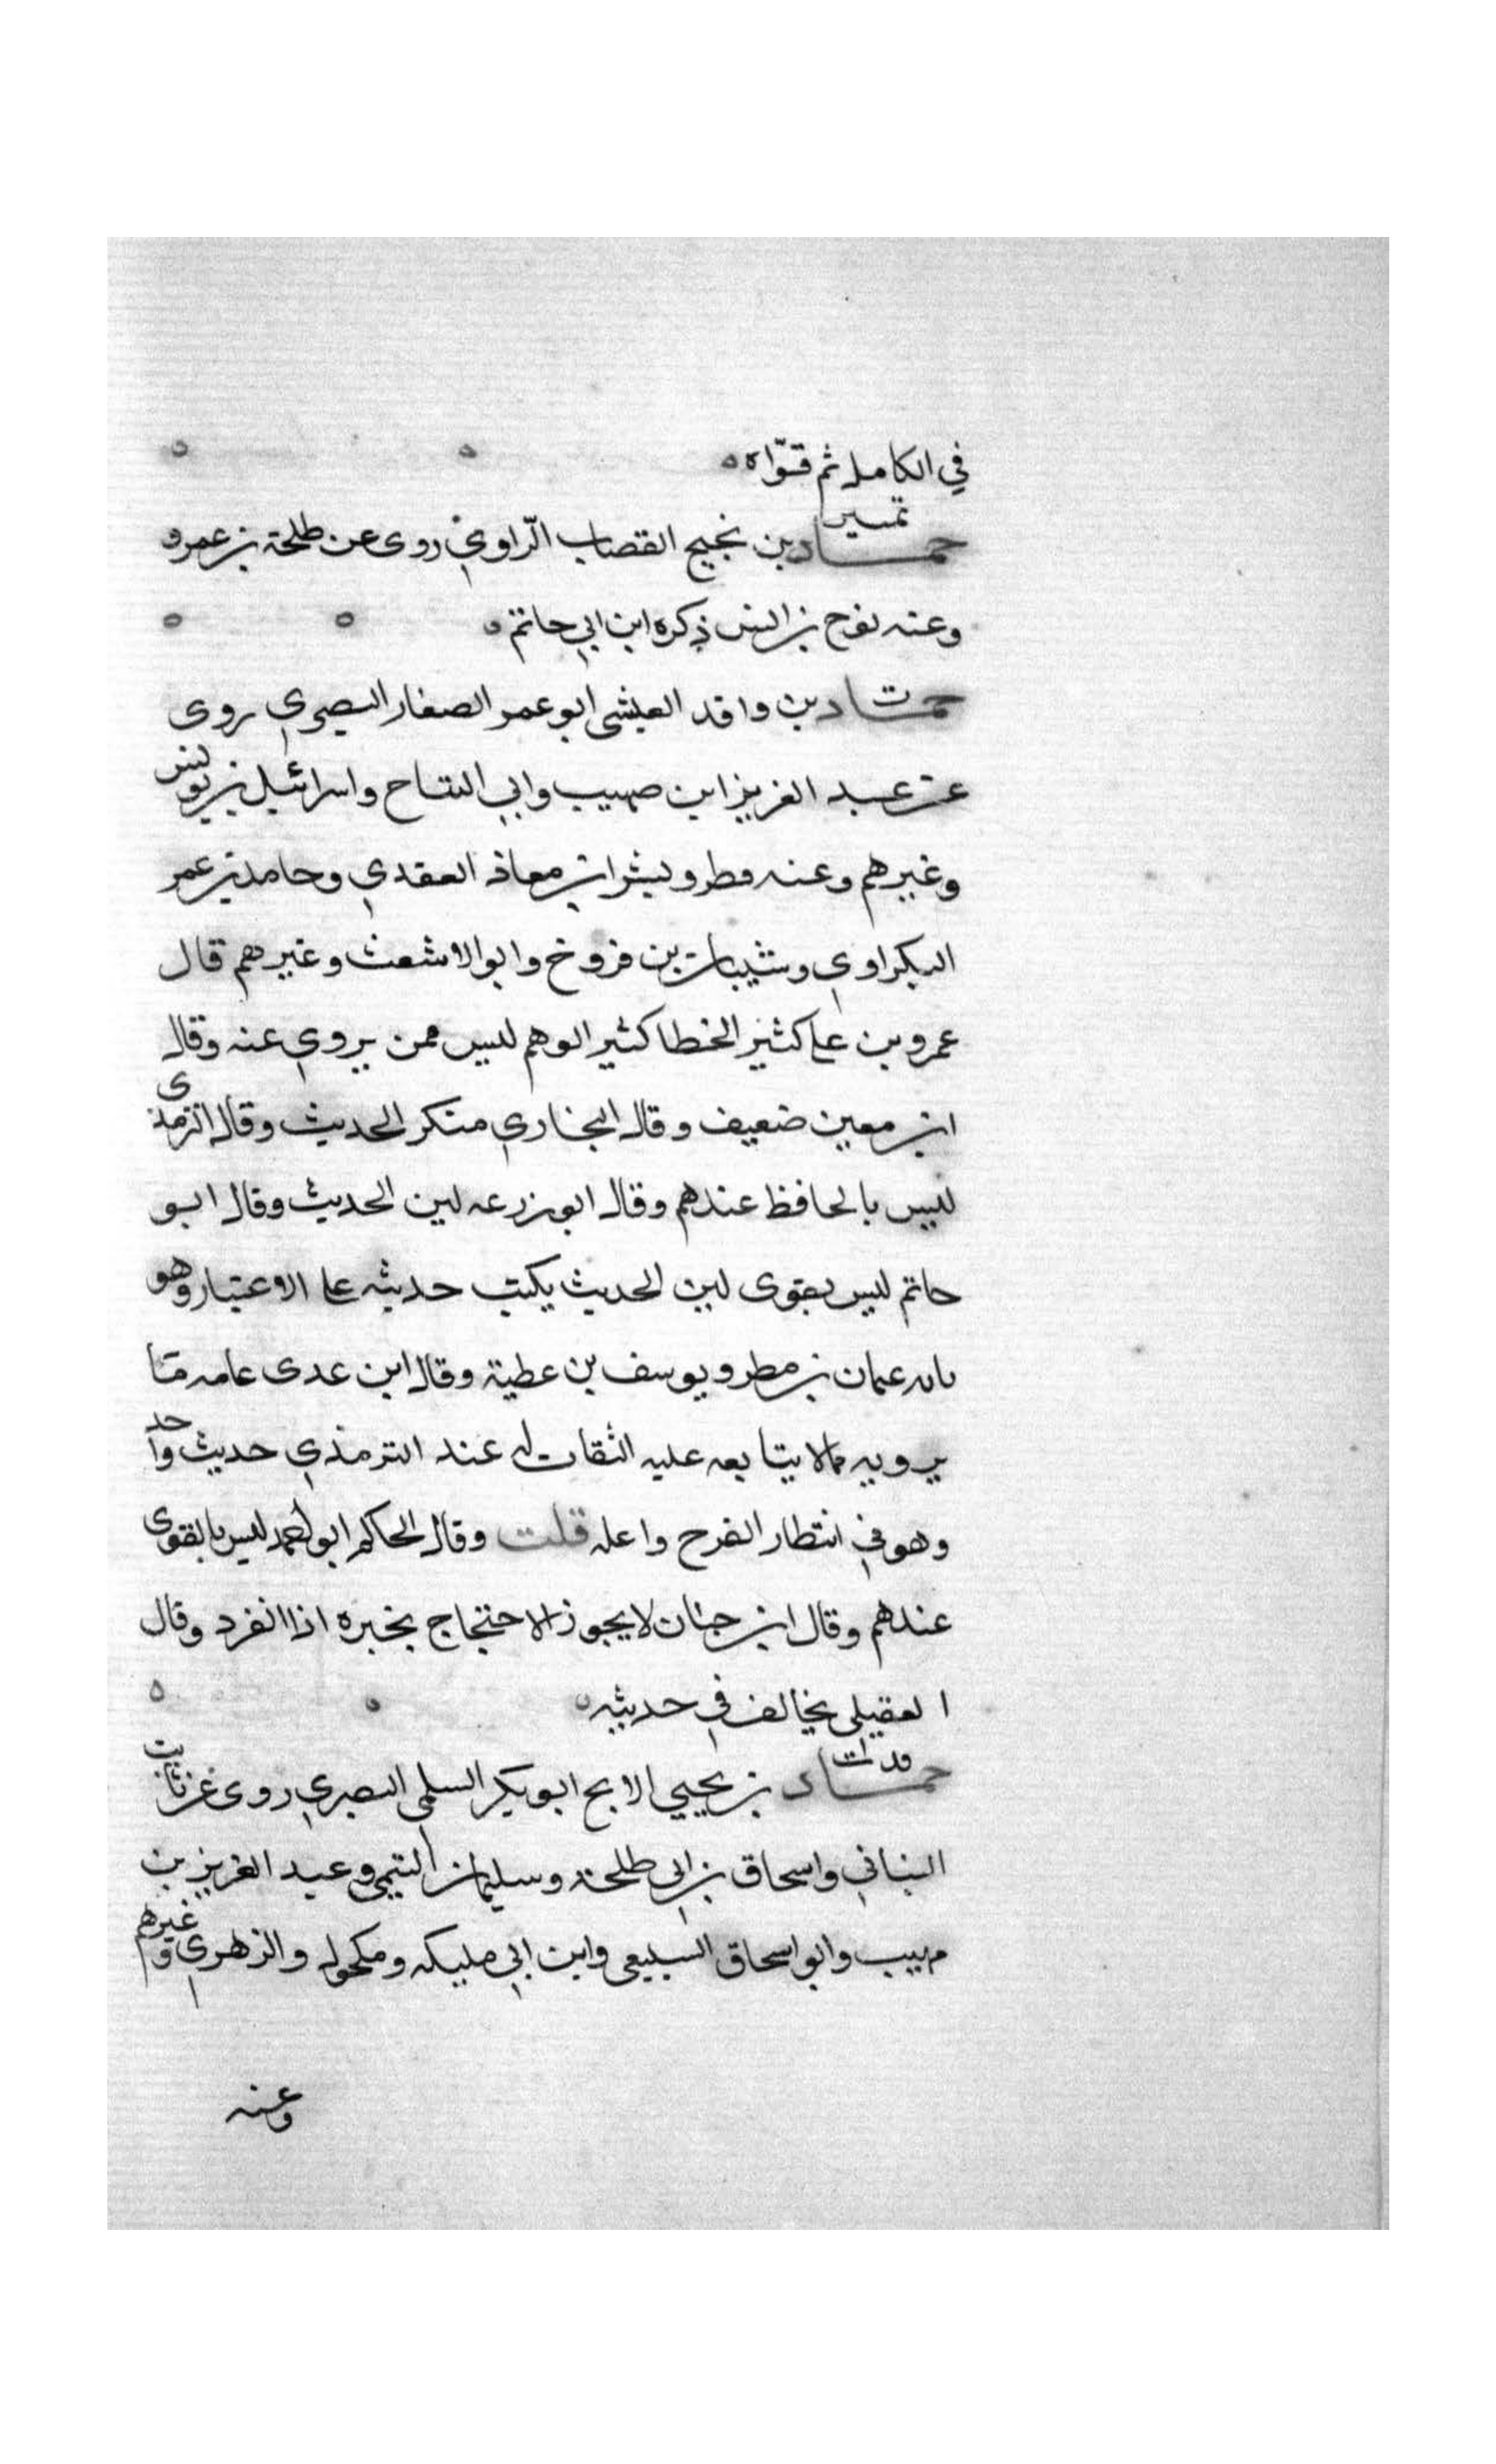 في الكامل ثم قوّاه
تمييز
حماد بن نجيح القصاب الرّاوي روى عن طلحة بن عمرو
وعنه نوح بن انس ذكره ابن ابي حاتم
ت
حماد بن واقد العيشى ابو عمر الصفار البصري روى
عن عبد العزيز ابن صهيب وابي التياح واسرائيل بن يونس
وغيرهم وعنه فطر وبشر ابن معاذ العقدي وحامد بن عمر
البكراوي وشيبان بن فروخ وابو الاشعث وغيرهم قال
عمرو بن علي كثير الخطا كثير الوهم ليس ممن يروي عنه وقال
ابن معين ضعيف وقال البخاري منكر الحديث وقال الترمذى
ليس بالحافظ عندهم وقال ابو زرعه لين الحديث وقال ابو
حاتم ليس بقوى لين الحديث يكتب حديثه على الاعتبار وهو
بابه عثمان بن مطر ويوسف بن عطية وقال ابن عدى عامه مَا
يرويه مما لا يتابعه عليه الثقات له عند الترمذي حديث واحد
وهو في انتظار الفرح واعله قلت وقال الحاكم ابو احمد ليس بالقوى
عندهم وقال ابن حبان لا يجوز الاحتجاج بخبره اذا انفرد وقال
العقيلى يخالف في حديثه
قد ت
حماد بن يحيي الابح ابو بكر السلمى البصري روى عن ثابت
البناني واسحاق بن ابي طلحة وسليمان التيمي وعبد العزيز بن
صهيب وابو اسحاق السبيعى وابن ابي مليكه ومكحول والزهري وغيرهم
وعنه